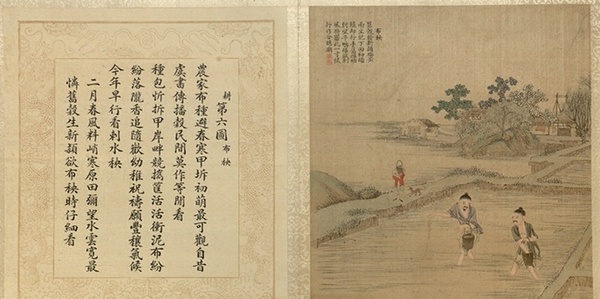 耕 第六圖 布秧
農家布種避春寒甲坼初萌最可觀自昔
虞書傳播穀民間莫作等閒看
種包忻拆甲岸畔競攜筐活活衝泥布紛
紛落隴香追隨歡幼稚祝禱願豐穰氣候
今年早行看刺水秧
二月春風料峭寒原田彌望水雲寬最
憐舊穀生新穎欲布秧時仔細看
布秧
雨生肥下田初播
行作合穗歸